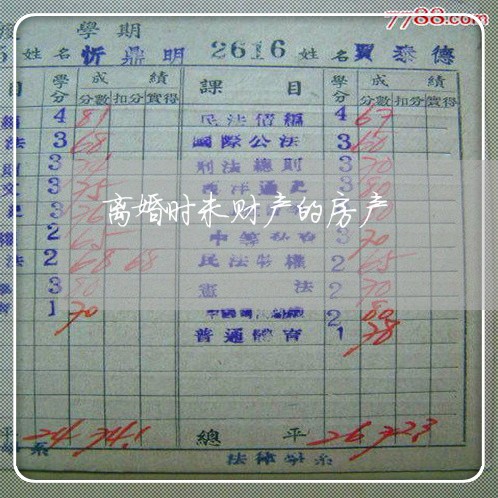 7788.com
學期
5 姓名 忻鼎明 2616 姓名 賈泰德
目 學分 成績 課目 學分 成績
分數 扣分 實得 分數 扣分 實得
4 81 民法債編 4 67
法 3 68 國際公法 3 60
3 刑法總則 3 70
文 3 75 西洋通史 3
3 76 3
離婚时未财产的房产
權 2 65 3 70
法 2 68 68 民法物權 2 65
3 80 憲法 2 70
1 70 2 80
普通體育 1 78
平 24 74.1 總平 26 72.3
系 法律學系